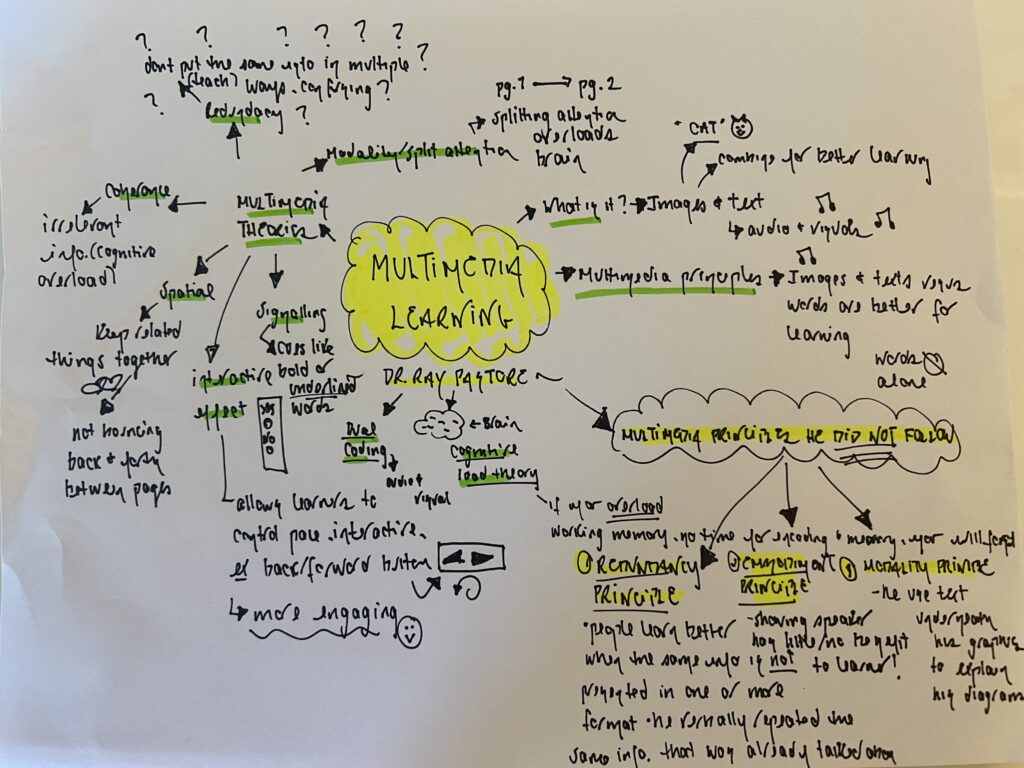 ? ? ? ? ? ?
dont put the same info in multiple ?
(teach) ways. confusing ?
? Redundacy ?
Modality/split attention
pg.1 → pg.2
splitting attention
overloads
brain
"CAT"
combine for better learning
What is it? → Images & text
↳ audio & visuals
Multimedia principles → Images & texts versus
words are better for
learning
words
alone
Coherance
irrelevant
info. (cognitive
overload)
MULTIMEDIA
THEORIES
Spatial
Keep related
things together
not bouncing
back & forth
between pages
Signalling
cues like
bold or
underlined
words
interactive
effect
allows learners to
control pace. interactive.
ex back/forward button
↳ more engaging
MULTIMEDIA
LEARNING
DR. RAY PASTORE
Dual
Coding
audio &
visual
← Brain
cognitive
load theory
if your overload
working memory. no time for encoding & memory. your will forget
MULTIMEDIA PRINCIPLES HE DID NOT FOLLOW
① REDUNDANCY
PRINCIPLE
• people learn better
when the same info is not
presented in one or more
format • he verbally repeated the
same info. that was already talked about
②
PRINCIPLE
- showing speaker
has little/no benefit
to learner!
③ MODALITY PRINCIPLE
- he use text
underneath
his graphics
to explain
his diagrams